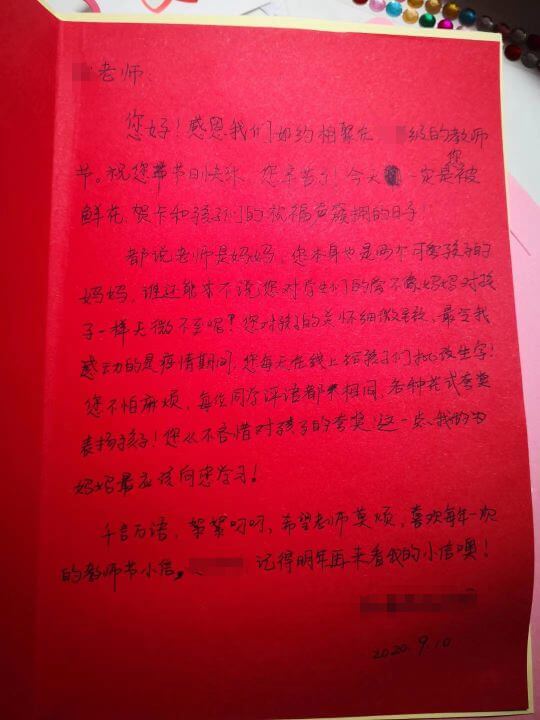 老师
您好！感恩我们如约相聚在 级的教师
节。祝您节日快乐，您辛苦了！今天一定是您被
鲜花、贺卡和孩子们的祝福声簇拥的日子！
都说老师是妈妈，您本身也是两个可爱孩子的
妈妈，谁还能来不说您对学生们的爱不像妈妈对孩
子一样无微不至呢？您对孩子的关怀细微，最令我
感动的是疫情期间，您每天在线上给孩子们批改生字！
您不怕麻烦，每位同学评语都不相同，各种花式夸奖
表扬孩子！您从不吝惜对孩子的夸奖！这一点，我的为
妈妈最应该向您学习！
千言万语，絮絮叨叨，希望老师莫烦，喜欢每年一次
的教师节小信。 记得明年再来看我的小信噢！
2020.9.10